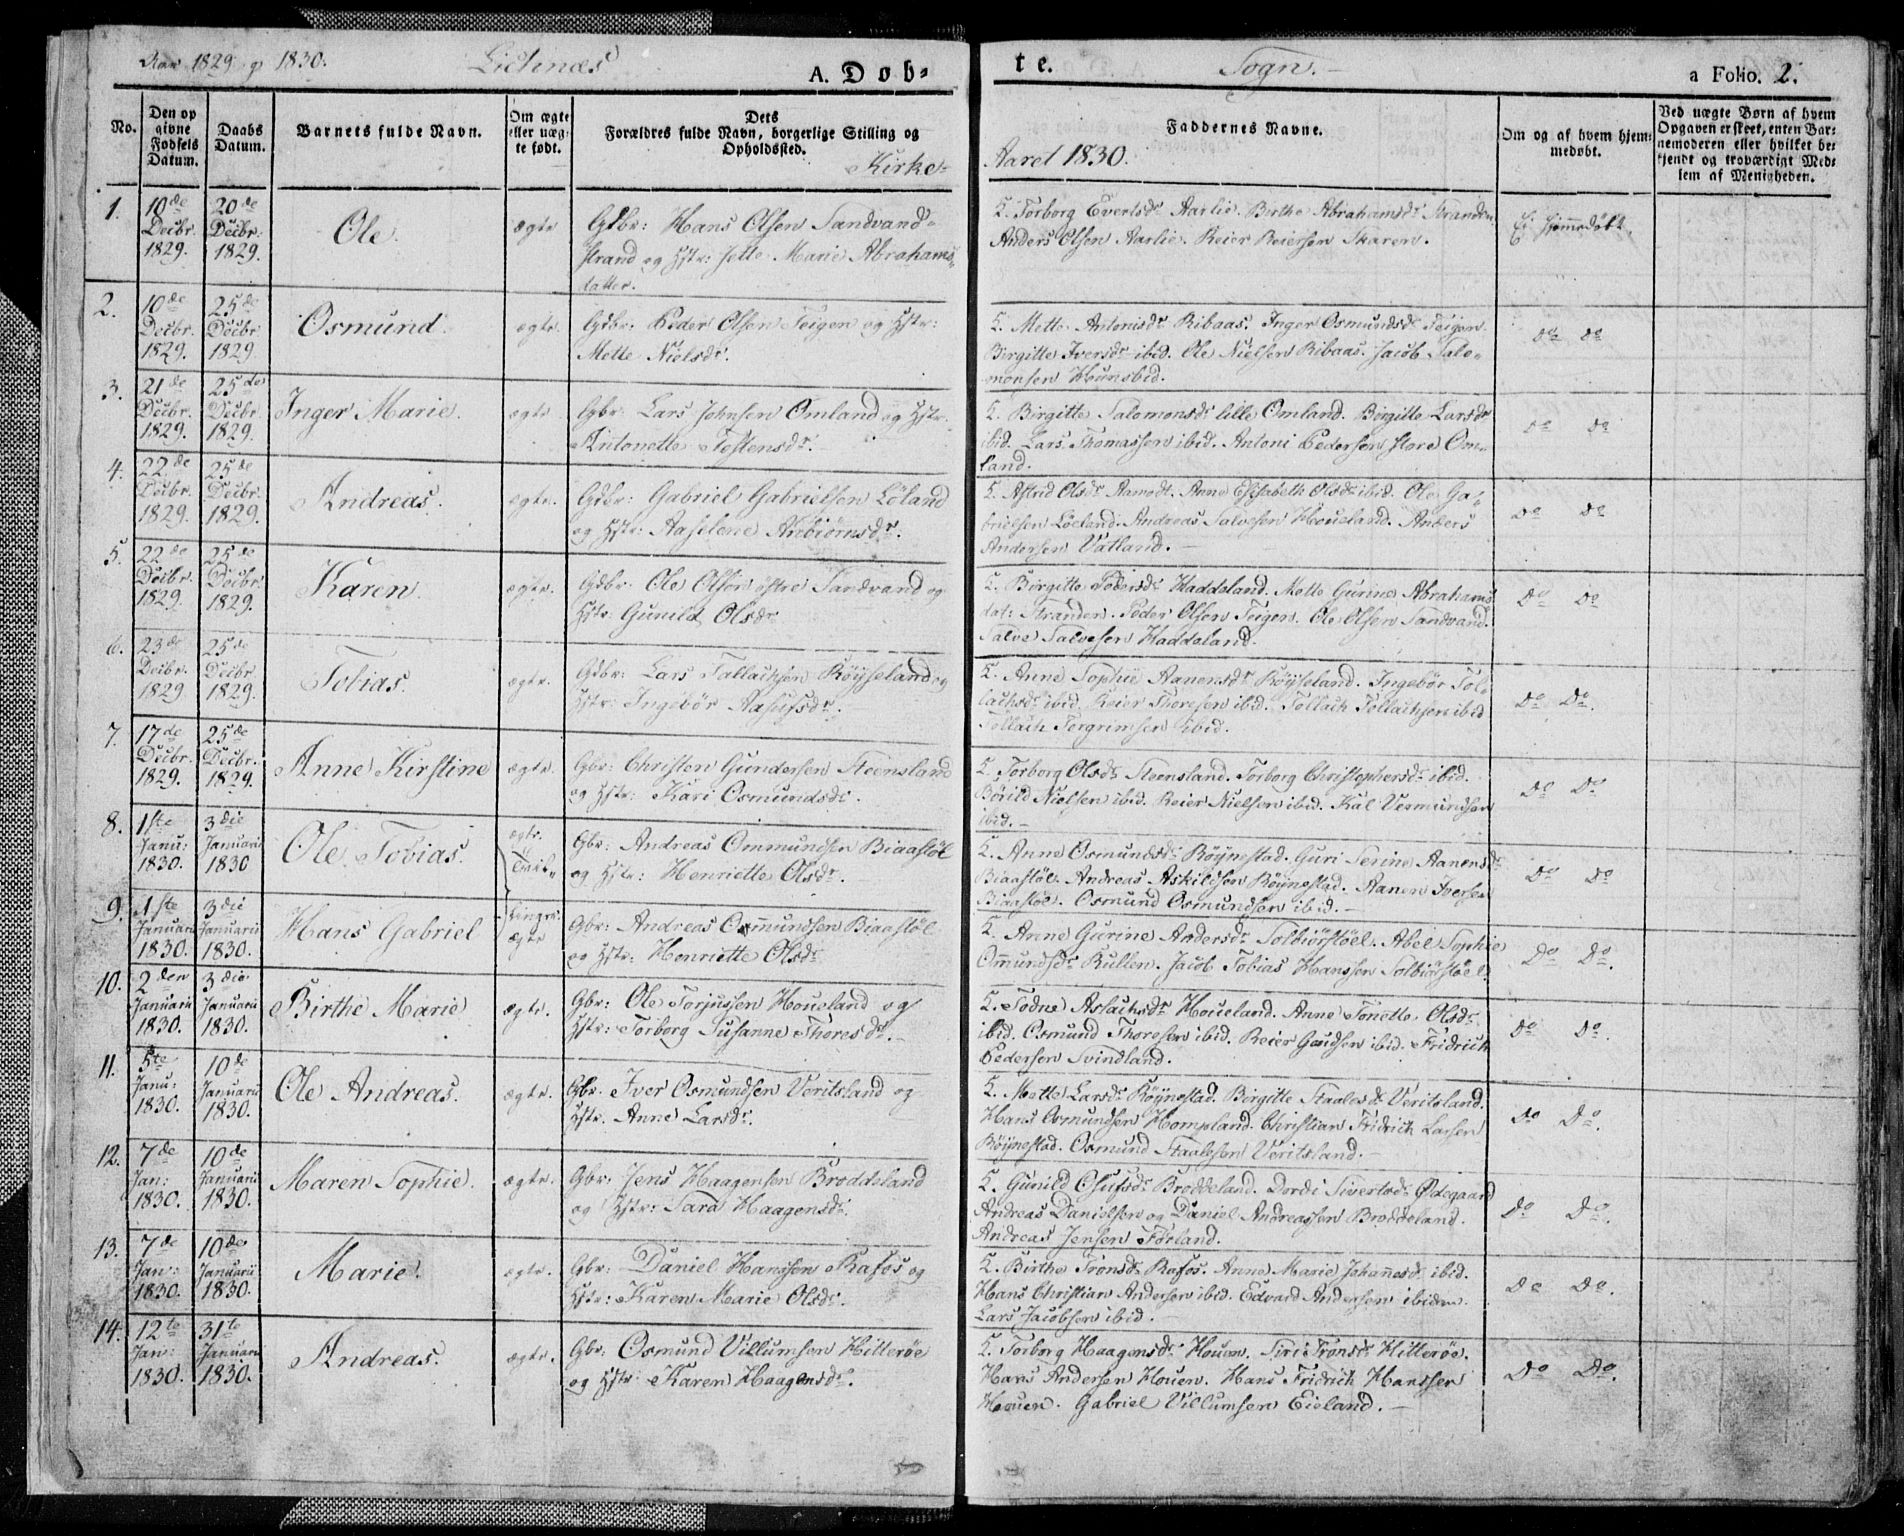 1829 og 1830.
A. Døb-
te.
Sogn.
a Folio. 2.
No.
Den opgivne Fødsels Datum.
Daabs Datum.
Barnets fulde Navn.
Om ægte eller uægte født.
Dets
Forældres fulde Navn, borgerlige Stilling og
Opholdssted.
Kirke-
Aaret 1830.
Faddernes Navne.
Om og af hvem hjemmedøbt.
Ved uægte Børn af hvem
Opgaven er skeet, enten Bar-
nemoderen eller hvilket be-
kjendt og troværdigt Med-
lem af Menigheden.
1. 10de Decbr. 1829. 20de Decbr. 1829. Ole. ægte
Gdbr: Hans Olsen Sandvand-
strand og Hstr: Jette Marie Abrahams-
datter.
F. Torborg Evertsdr Aarlie. Berthe Abrahamsdr Stranden
Anders Olsen Aarlie. Reier Reiersen Skaren.
Ei hjemmedøbt.
2. 10de Decbr. 1829. 25de Decbr 1829. Osmund. ægte.
Gdbr: Peder Olsen Teigen og Hstr:
Mette Nielsdr.
F. Mette Antonisdr Ribaas. Inger Osmundsdr Teigen
Birgitte Iversdr ibid. Ole Nielsen Ribaas. Jacob Salo-
monsen Hunsbid.
do do
3. 21de Decbr. 1829. 25de Decbr 1829. Inger Marie. ægte.
Gbr: Lars Johnsen Omland og Hstr.
Antonette Tostensdr.
F. Birgitte Salomonsdr lille Omland. Birgitte Larsdr
ibid. Lars Thomassen ibid. Antoni Pedersen store Om-
land.
do do
4. 22de Decbr. 1829. 25de Decbr. 1829. Andreas. ægte.
Gdbr: Gabriel Gabrielsen Löland
og Hstr: Aaselene Anbiörnsdr.
F. Astrid Olsdr Aamodt. Anne Elisabeth Olsdr ibid. Ole Ga-
brielsen Löeland. Andreas Salvesen Houeland. Anders
Andersen Vatland.
Do Do
5. 22de Decbr. 1829. 25de Decbr. 1829. Karen. ægte.
Gdbr: Ole Olsen östre Sandvand og
Hstr: Gunild Olsdr
F. Birgitte Pedersdr Haddeland. Mette Gurine Abrahams
dat: Stranden. Peder Olsen Teigen. Ole Olsen Sandvand.
Salve Salvesen Haddeland.
Do Do
6. 23de Decbr. 1829 25de Decbr. 1829. Tobias. ægte.
Gdbr: Lars Tallachsen Röysseland og
Hstr: Ingebör Aasulfsdr.
F. Anne Sophie Aanensdr Röysseland. Ingebör Tol-
lachsdr ibid. Reier Thoresen ibid. Tollach Tollachsen ibid
Tollach Torgrimsen ibid.
Do Do.
7. 17de Decbr. 1829. 25de Decbr. 1829. Anne Kirstine ægte.
Gbr: Christen Gundersen Steensland
og Hstr: Kari Osmundsdr.
F. Torborg Olsdr Steensland. Torborg Christophersdr ibid.
Börild Nielsen ibid. Reier Nielsen ibid. Kal Vermundsen
ibid.
Do Do.
8. 1ste Janu: 1830. 3die Januarii 1830 Ole Tobias. ægte.
Gbr: Andreas Ommundsen Biaastöl
og Hstr: Henriette Olsdr.
F. Anne Osmundsdr Röynestad. Guri Serine Aanensdr
Biaastöl. Andreas Askildsen Röynestad. Aanen Iversen
Biaastöl. Osmund Osmundsen ibid.
Do Do
9. 1ste Januarii 1830. 3die Januarii 1830. Hans Gabriel ægte
Gbr: Andreas Ommundsen Biaastöl
og Hstr: Henriette Olsdr
F. Anne Gurine Andersdr Solbiörstöel. Abel Sophie
Ommundsdr Rullen. Jacob Tobias Hanssen Solbiörstöel.
Do Do.
10. 2den Januarii 1830. 3die Januarii 1830. Birthe Marie ægte.
Gbr: Ole Torjussen Houeland og
Hstr: Torborg Susanne Thoresdr.
F. Todne Aslachsdr Houeland. Anne Tonette Olsdr
ibid. Osmund Thoresen ibid. Reier Gundsen ibid. Fridrich
Pedersen Svindland.
Do Do.
11. 5te Janu: 1830. 10de Januarii 1830. Ole Andreas. ægte.
Gbr. Iver Osmundsen Veritsland og
Hstr. Anne Larsdr.
F. Mette Larsdr Röynestad. Birgitte Staalesdr Veritsland.
Hans Osmundsen Hompland. Christian Fridrich Larsen
Röynestad. Osmund Staalesen Veritsland.
Do Do.
12. 7de Jan: 1830. 10de Januarii 1830. Maren Sophie. ægte.
Gbr: Jens Haagensen Broddeland
og Hstr: Sara Haagensdr.
F. Gunild Olufsdr Broddeland. Dordi Sivertsdr Ødegaard
Andreas Danielsen og Daniel Andreassen Broddeland.
Andreas Jensen Förland.
Do Do.
13. 7de Jan: 1830. 10de Januarii 1830. Marie. ægte.
Gbr: Daniel Hanssen Rafos og
Hstr: Karen Marie Olsdr.
F. Birthe Tronsdr Rafos. Anne Marie Johannesdr ibid.
Hans Christian Andersen ibid. Edvard Andersen ibidem.
Lars Jacobsen ibid.
Do Do.
14. 12te Jan: 1830. 31te Januarii 1830. Andreas. ægte.
Gbr: Osmund Villumsen Hitterøe
og Hstr: Karen Haagensdr.
F. Torborg Haagensdr Houen. Siri Tronsdr Hitterøe.
Hans Andersen Houen. Hans Fridrich Hanssen
Houen. Gabriel Villumsen Eieland.
Do Do.